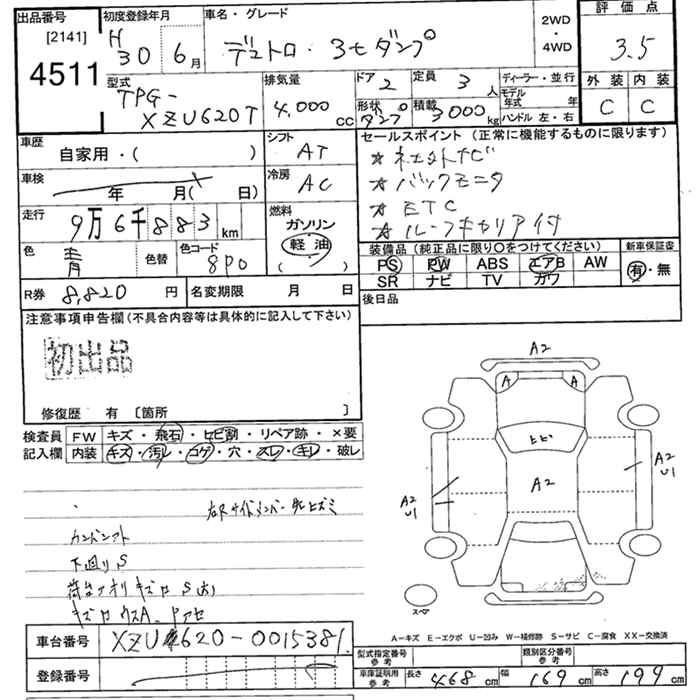 出品番号
[2141]
4511
初度登録年月
H30 6月
車名・グレード
デュトロ・3tダンプ
2WD
・
4WD
評価点
3.5
外装 内装
C C
型式
TPG-
XZU620T
排気量
4.000 CC
ドア 2
定員 3 人
形状 ダンプ
積載 3000 kg
ディーラー・並行
モデル年式 年
ハンドル 左・右
車歴
自家用・( )
シフト
AT
車検
年 月( 日)
冷房
AC
走行
9万6千883 km
燃料
ガソリン
軽油
( )
色
青
色替
色コード
8P0
R券 8,820 円
名変期限 月 日
セールスポイント (正常に機能するものに限ります)
☆ 社外ナビ
☆ バックモニタ
☆ ETC
☆ ルーフキャリア付
装備品 (純正品に限り○をつけてください)
PS PW ABS エアB AW
SR ナビ TV カワ
新車保証書
有・無
後日品
注意事項申告欄(不具合内容等は具体的に記入して下さい)
初出品
修復歴 有 〔箇所 〕
検査員記入欄
FW キズ・飛石・ヒビ割・リペア跡・×要
内装 キズ・汚レ・コゲ・穴・スレ・キレ・破レ
右Rサイドメンバー
下廻りS
荷台アオリキズ
A2
A A
ヒビ
A2
A2
U1
A2
U1
スペア
A-キズ E-エクボ U-凹み W-補修跡 S-サビ C-腐食 XX-交換済
車台番号 XZU620-0015381
登録番号
型式指定番号
参考
類別区分番号
参考
車庫証明用
参考
長さ 468 cm
幅 169 cm
高さ 199 cm